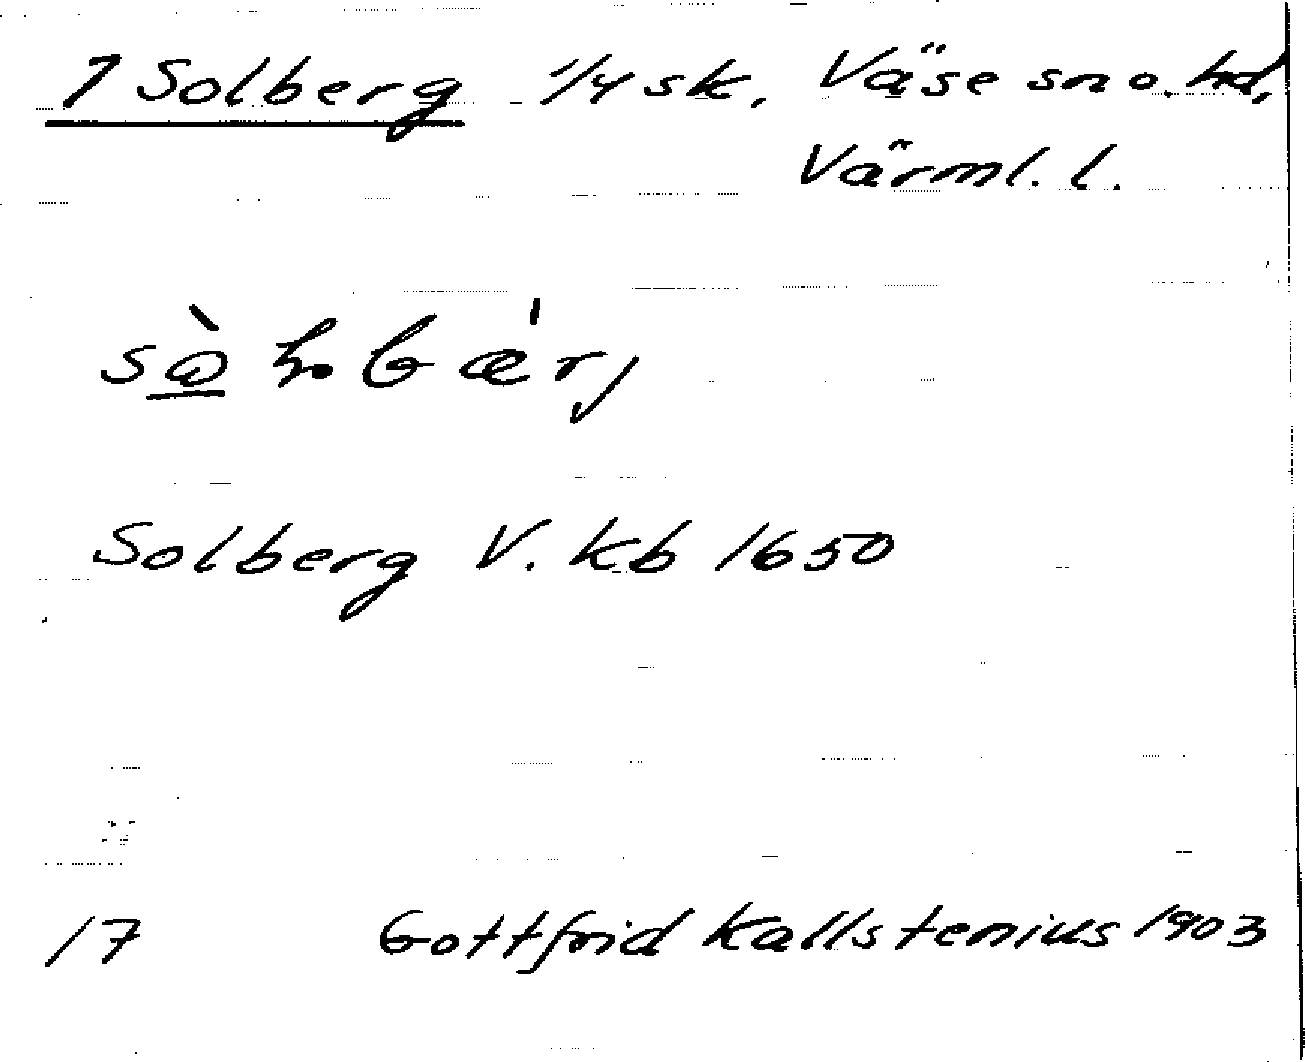 1 Solberg 1/4 sk. Väse sn o. hd,
Värml. l.
Solberg V. Kb 1650
17 Gottfrid Kallstenius 1903